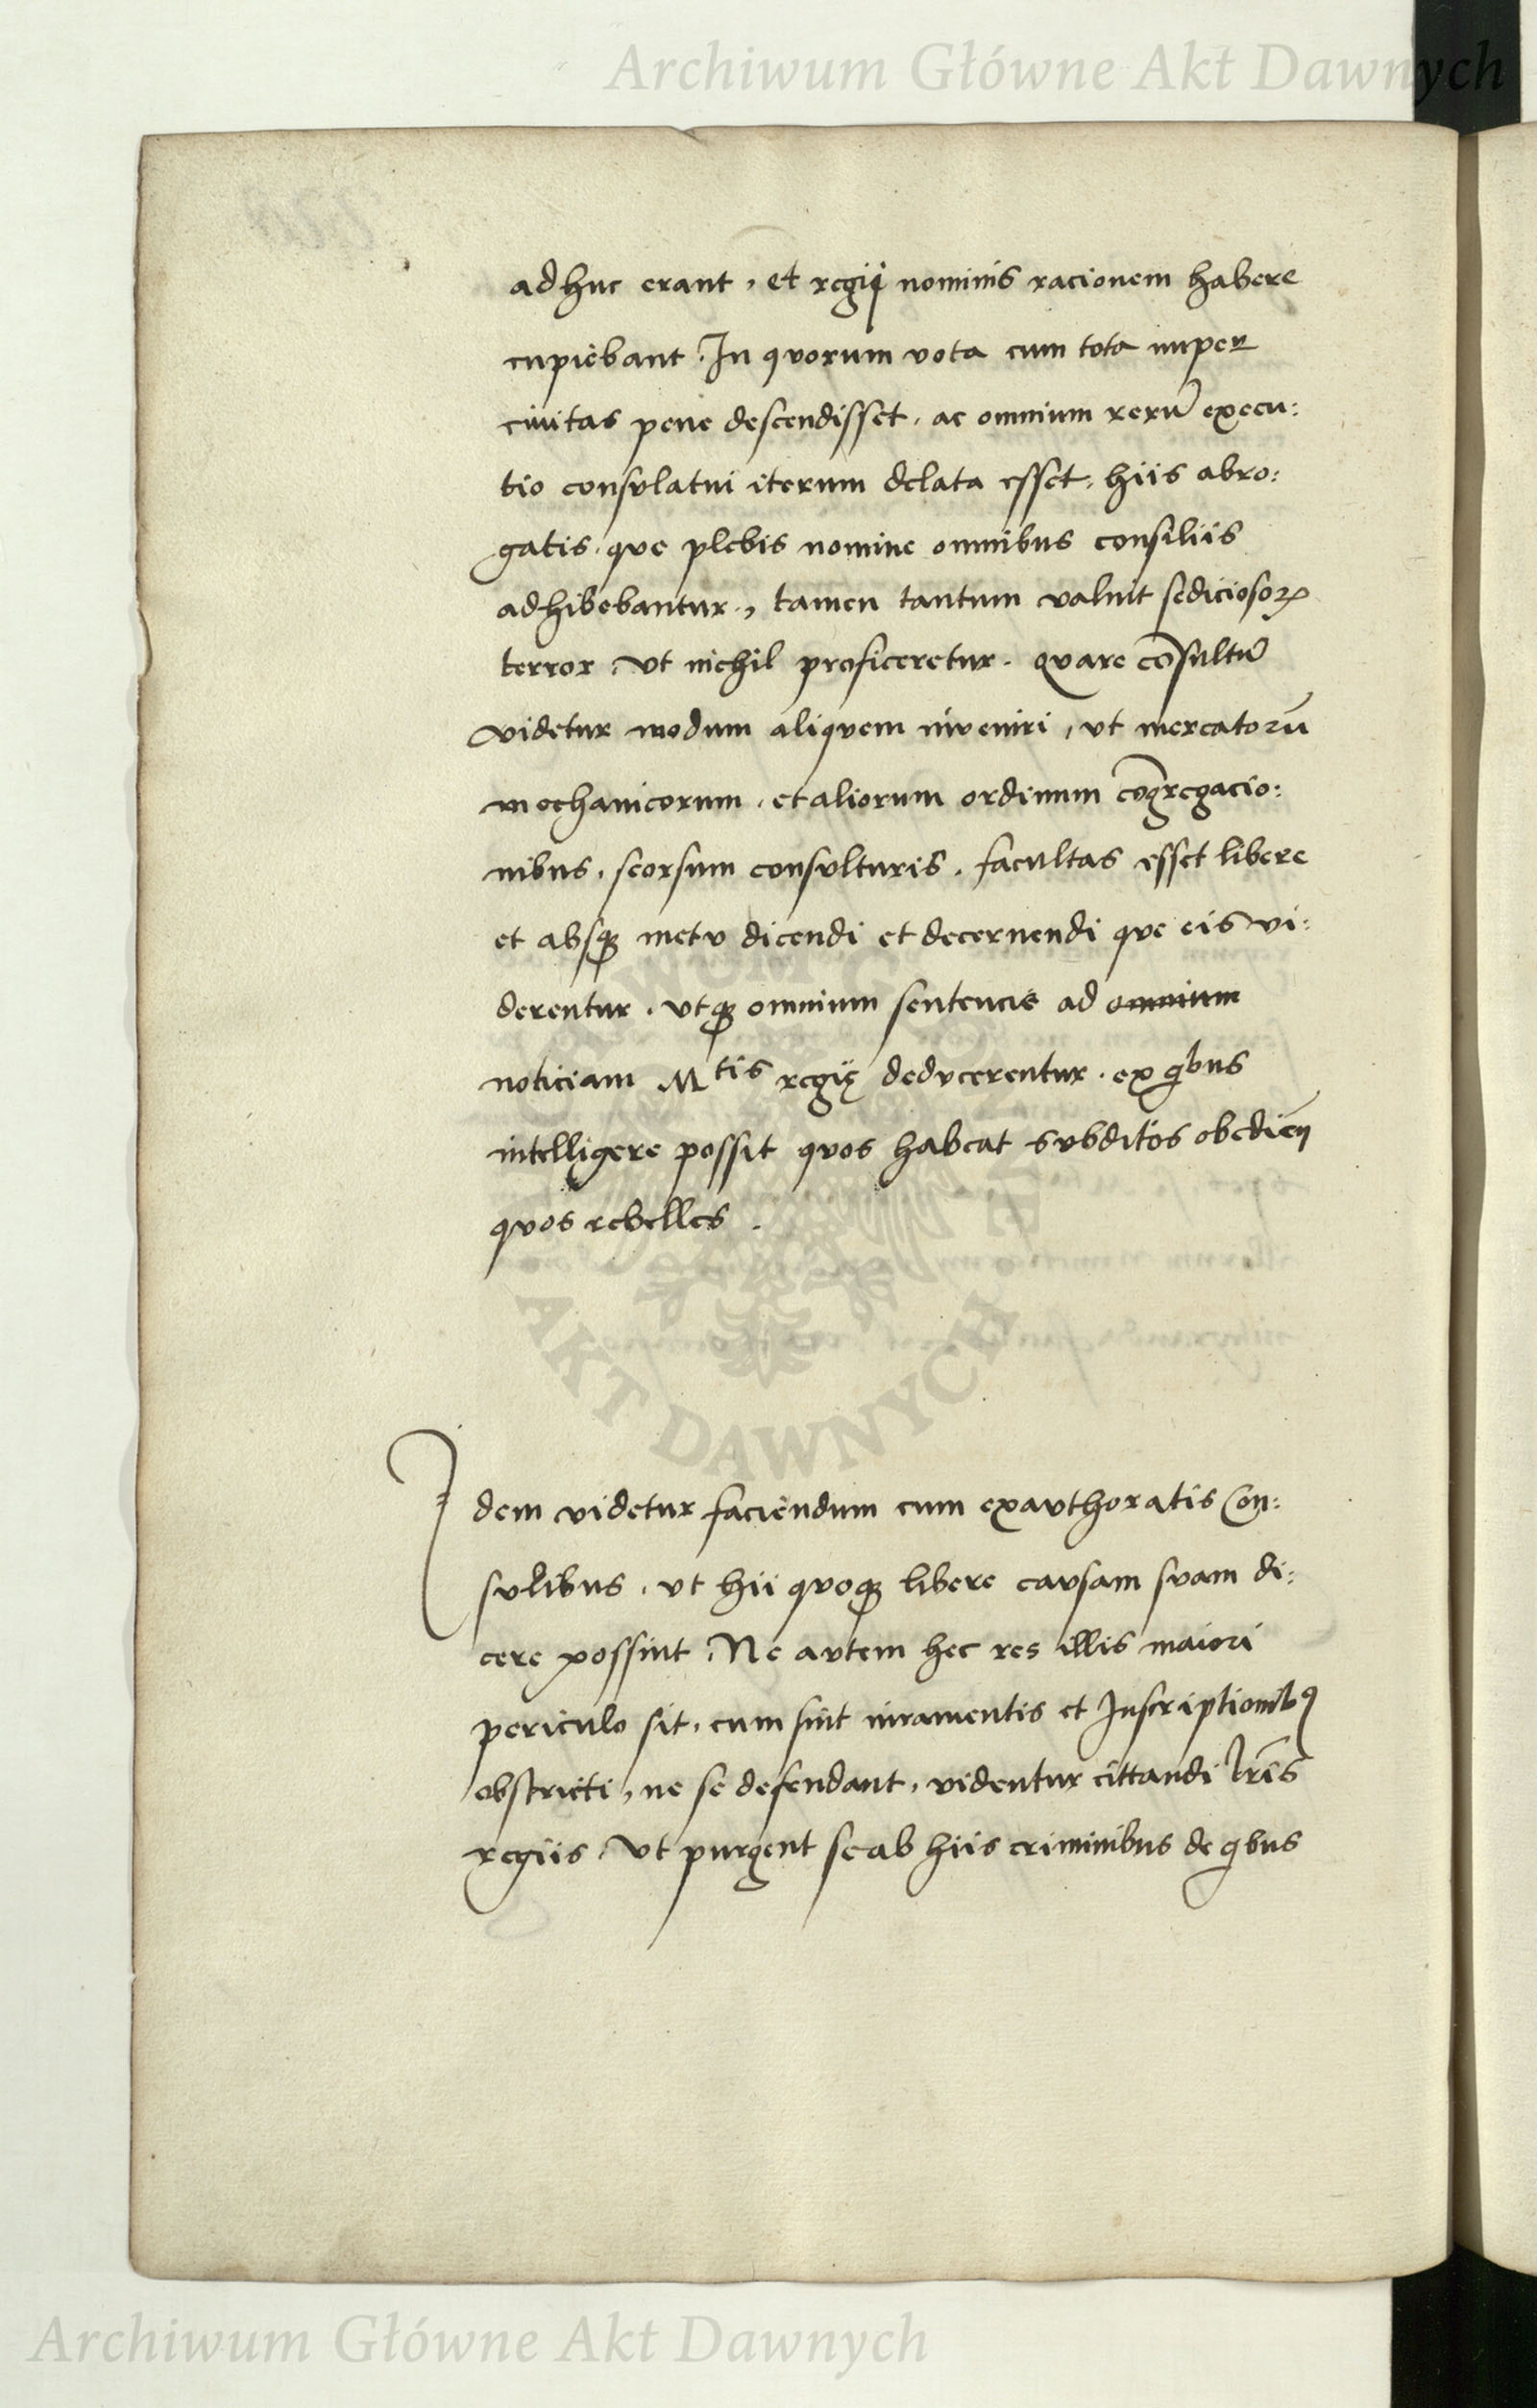 Archiwum Główne Akt Dawnych
adhuc erant, et regij nominis racionem habere
cupiebant. In quorum vota cum tota nuper
ciuitas pene descendisset, ac omnium rerũ execu:
tio consulatui iterum delata esset, hiis abro:
gatis, que plebis nomine omnibus consiliis
adhibebantur, tamen tantum valuit sediciosoꝝ
terror, vt nichil proficeretur. Quare cõsultũ
videtur modum aliquem inveniri, vt mercatorũ
mechanicorum, et aliorum ordinum cõgregacio:
nibus, seorsum consulturis, facultas esset libere
et absqꝫ metu dicendi et decernendi que eis vi:
derentur, vtqꝫ omnium sentencie ad omnium
noticiam Mtis regię deducerentur, ex qibus
intelligere possit quos habeat subditos obediẽn
quos rebelles.
Idem videtur faciendum cum exauthoratis Con:
sulibus, vt hii quoqꝫ libere causam suam di:
cere possint. Ne autem hec res illis maiori
periculo sit, cum sint iuramentis et Inscriptionibꝰ
obstricti, ne se defendant, videntur cittandi lr̃is
regiis, vt purgent se ab hiis criminibus de qibus
AKT DAWNYCH
Archiwum Główne Akt Dawnych